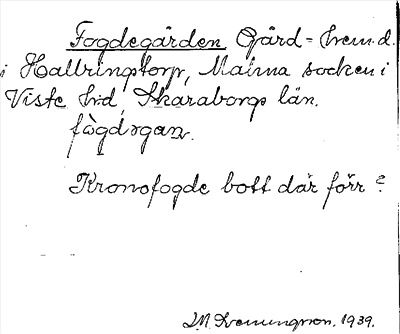 Fogdegården Gård = hem. d.
i Hallringstorp, Malma socken i
Viste hd, Skaraborgs län.
fògdəgaɳ.
Kronofogde bott där förr?
1939.